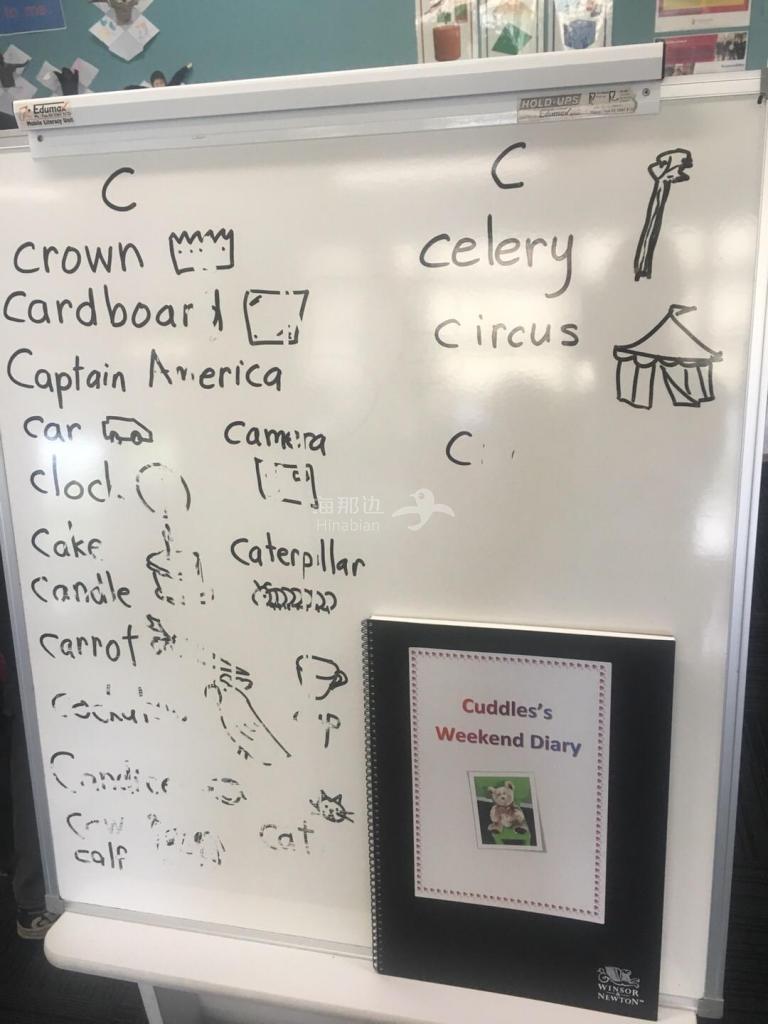 to me.
Edumax
Mobile Literacy Unit
HOLD-UPS
Edumax
C
crown
cardboard
Captain America
car
camera
clock
cake
caterpillar
candle
carrot
Candice
cow
cat
calf
C
celery
circus
C
海那边
Hinabian
Cuddles's
Weekend Diary
WINSOR
&
NEWTON